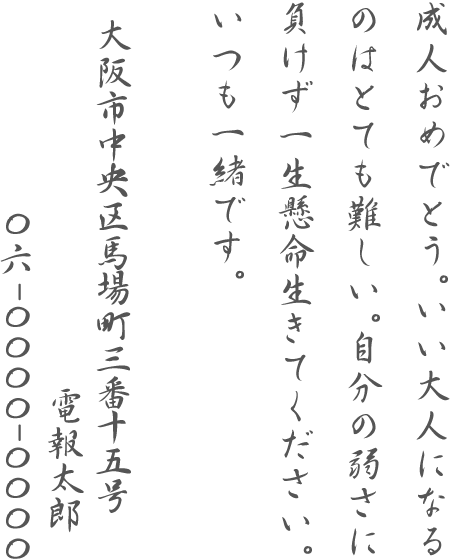 成人おめでとう。いい大人になる
のはとても難しい。自分の弱さに
負けず一生懸命生きてください。
いつも一緒です。
大阪市中央区馬場町三番十五号
電報太郎
〇六−〇〇〇〇−〇〇〇〇